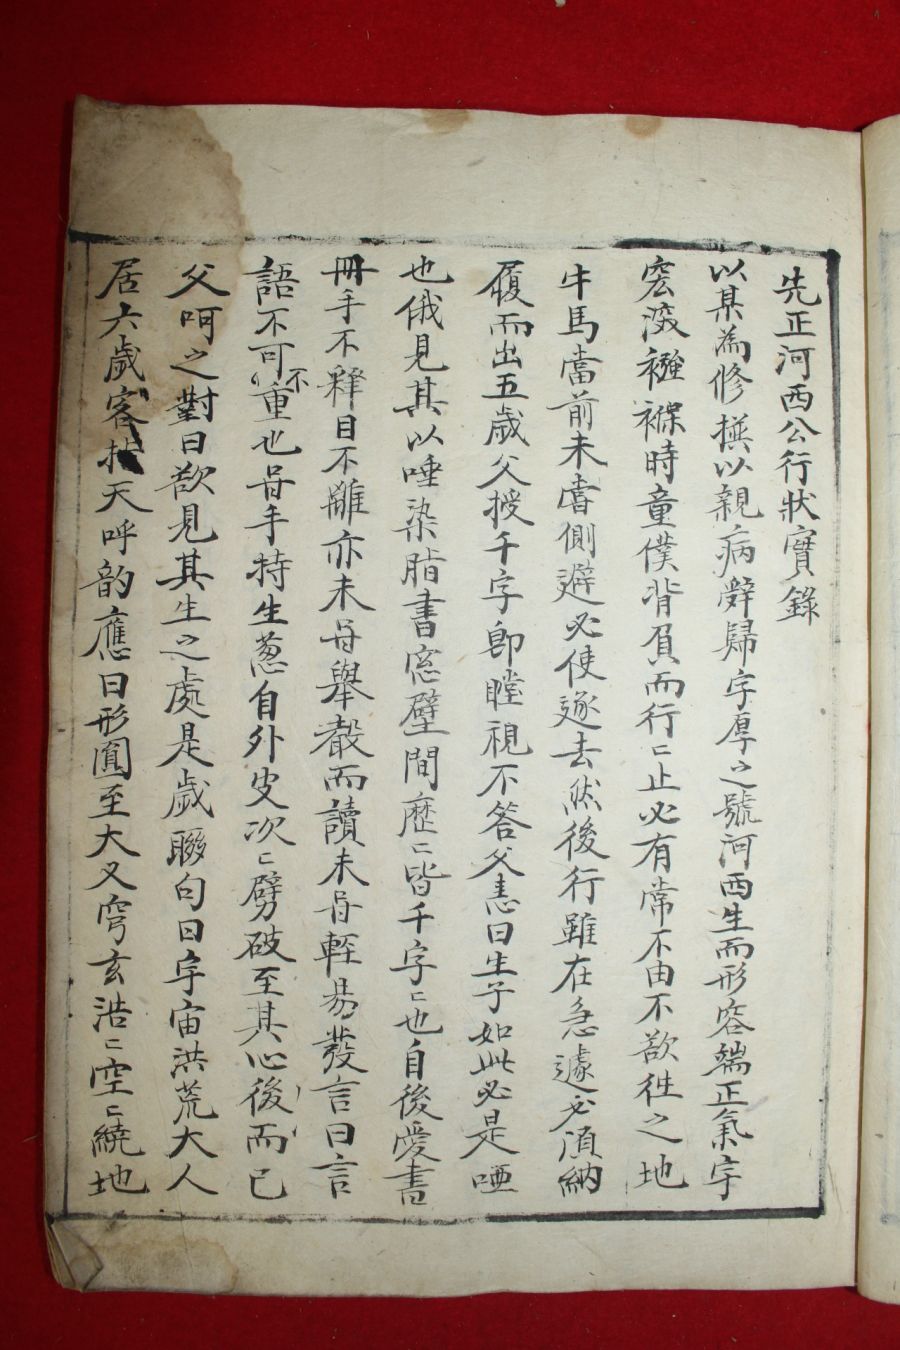 先正河西公行狀實錄
以某為修撰以親病辭歸字厚之號河西生而形容端正氣宇
宏深襁褓時童僕背負而行〻止必有常不由不欲徃之地
牛馬當前未嘗側避必使逐去然後行雖在急遽必須納
履而出五歲父授千字卽瞠視不答父恚曰生子如此必是啞
也俄見其以唾染脂書窓壁間歷〻皆千字〻也自後愛書
冊手不釋目不離亦未甞舉聲而讀未甞輕易發言曰言
語不可不重也甞手持生葱自外皮次〻劈破至其心後而已
父呵之對曰欲見其生之處是歲聯句曰宇宙洪荒大人
居六歲客指天呼韵應曰形圓至大又穹玄浩〻空〻繞地